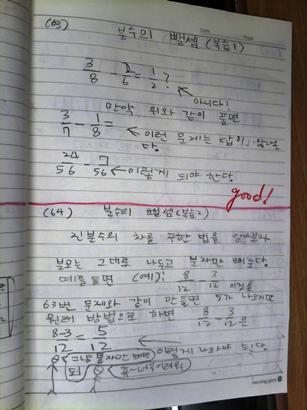 (63) 분수의 뺄셈 (복습1)
3/8 - 2/6 = 1/2?
아니다!
만약 위와 같이 풀면
3/7 - 1/8 = ← 이런 문제는 답이
다.
24/56 - 7/56 ← 이렇게 되야 한다
good!
(64) 분수의 뺄셈(복습2)
진분수의 차를 구한 법을 알아보자
분모는 그대로 나두고 분자만 빼준다.
예를들면 (예): 8/12 - 3/12
63번 문제와 같이 만들면 5가 나오지만
원래 방법으로 하면 8/12 - 3/12은
8-3/12 = 5/12
그냥 분자만 빼면 이렇게 나와야 한다.
morning glory